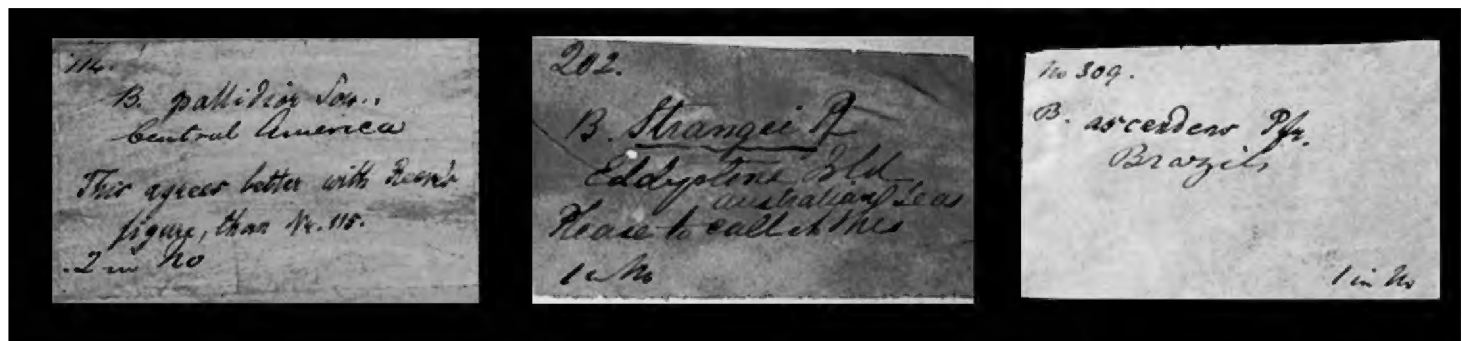 114.
B. pallidior Sow..
Central America
This agrees better with Reeve's
figure, than No. 115.
2 in No
202.
B. Strangei Pf
Eddystone Isld
Australian Seas
Please to call it this
1 in No
No 309.
B. ascendens Pfr.
Brazils
1 in No